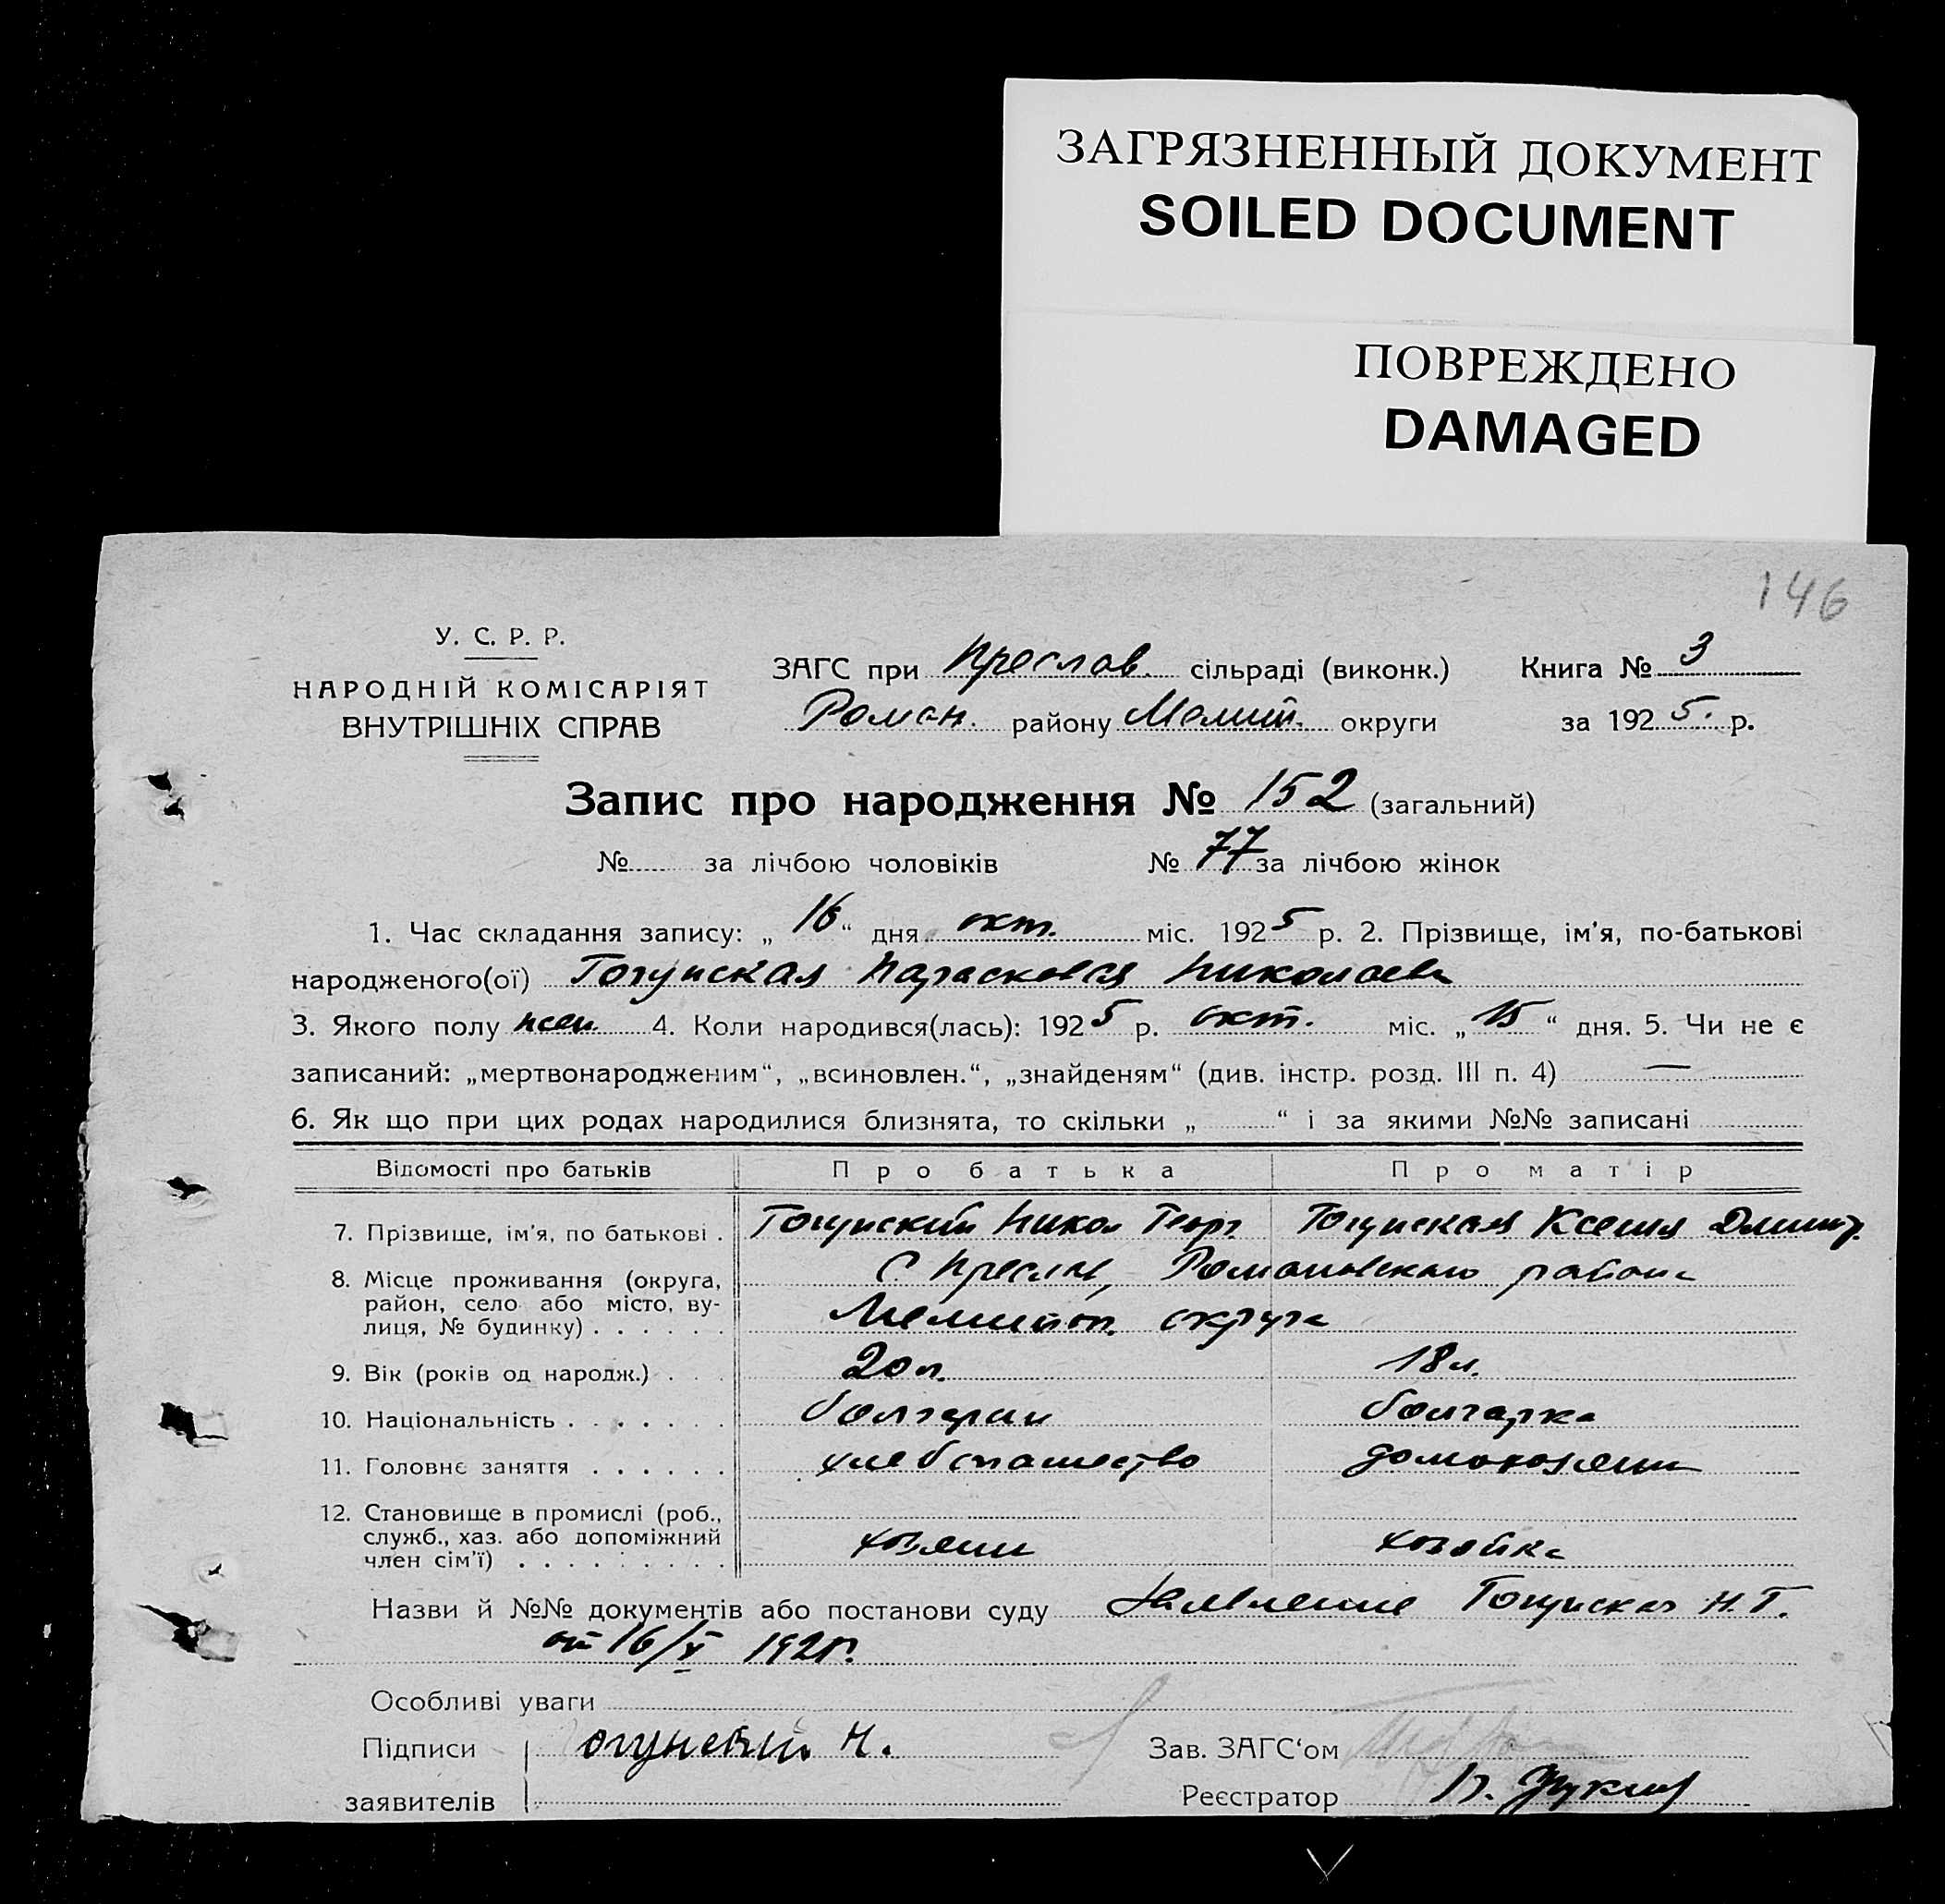 ЗАГРЯЗНЕННЫЙ ДОКУМЕНТ
SOILED DOCUMENT
ПОВРЕЖДЕНО
DAMAGED
146
У. С. Р. Р.
НАРОДНІЙ КОМІСАРІЯТ
ВНУТРІШНІХ СПРАВ
ЗАГС при Преслав. сільраді (виконк.) Книга № 3
Роман. району Мелит. округи за 1925. р.
Запис про народження № 152 (загальний)
№ за лічбою чоловіків № 77 за лічбою жінок
1. Час складання запису: „16“ дня окт. міс. 1925 р. 2. Прізвище, ім'я, по-батькові
народженого(ої) Тогунская Парасковья Николаев
3. Якого полу жен. 4. Коли народився(лась): 1925 р. окт. міс. „15“ дня. 5. Чи не є
записаний: „мертвонародженим“, „всиновлен.“, „знайденям“ (див. інстр. розд. III п. 4) —
6. Як що при цих родах народилися близнята, то скільки „ “ і за якими №№ записані
Відомості про батьків Про батька Про матір
7. Прізвище, ім'я, по батькові . Тогунский Никол Георг. Тогунская Ксения Дмитр.
8. Місце проживання (округа, С Преслав, Романовского района
район, село або місто, ву-
лиця, № будинку) . . . . . . Мелитоп. округа
9. Вік (років од народж.) . . . 20 л. 18 л.
10. Національність . . . . . . . болгарин болгарка
11. Головнє заняття . . . . . . хлебопашество домохозяин
12. Становище в промислі (роб.,
служб., хаз. або допоміжний хозяин хозяйка
член сім'ї) . . . . . . . . .
Назви й №№ документів або постанови суду Заявление Тогунская Н. Г.
от 16/X 1925г.
Особливі уваги
Підписи огунский Н. Зав. ЗАГС‘ом
заявителів Реєстратор П.